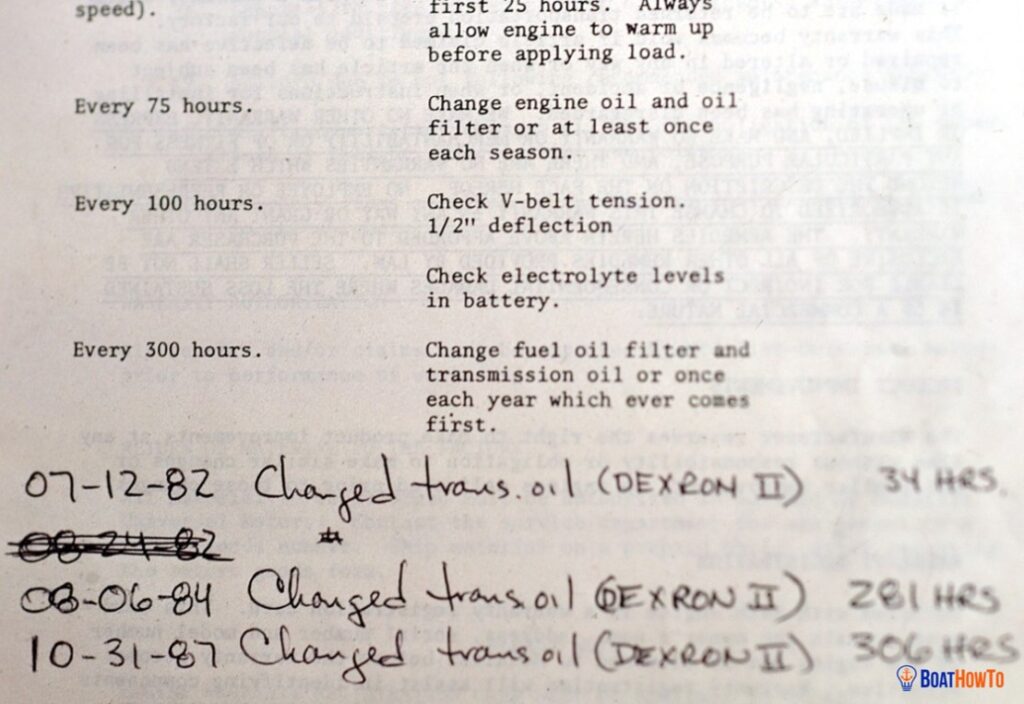 speed). first 25 hours. Always
allow engine to warm up
before applying load.
Every 75 hours. Change engine oil and oil
filter or at least once
each season.
Every 100 hours. Check V-belt tension.
1/2" deflection
Check electrolyte levels
in battery.
Every 300 hours. Change fuel oil filter and
transmission oil or once
each year which ever comes
first.
07-12-82 Changed trans. oil (DEXRON II) 34 HRS.
08-24-82 *
08-06-84 Changed trans. oil (DEXRON II) 281 HRS
10-31-87 Changed trans oil (DEXRON II) 306 HRS
BoatHowTo